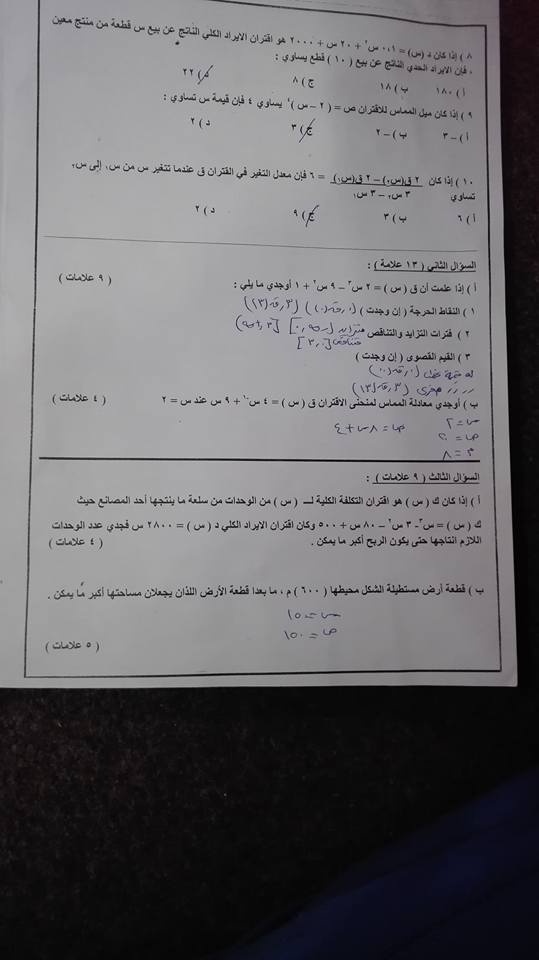 ٨ ) إذا كان د (س) = ٠,١ س٢ + ٢٠ س + ٢٠٠٠ هو اقتران الايراد الكلي الناتج عن بيع س قطعة من منتج معين
، فإن الايراد الحدي الناتج عن بيع ( ١٠ ) قطع يساوي :
أ ) ١٨٠ ب ) ١٨ ج ) ٨ د ) ٢٢
٩ ) إذا كان ميل المماس للاقتران ص = ( ٢ – س )٤ يساوي ٤ فإن قيمة س تساوي :
أ ) – ٣ ب ) – ٢ ج ) ٣ د ) ٢
١٠ ) إذا كان ٢ ق(س٢) – ٢ ق(س١) = ٦ فإن معدل التغير في اقتران ق عندما تتغير س من س١ إلى س٢
تساوي ٣ س٢ – ٣ س١
أ ) ٦ ب ) ٣ ج ) ٩ د ) ٢
السؤال الثاني ( ١٣ علامة ) :
أ ) إذا علمت أن ق ( س ) = ٢ س٣ – ٩ س٢ + ١ أوجدي ما يلي : ( ٩ علامات )
١ ) النقاط الحرجة ( إن وجدت )
٢ ) فترات التزايد والتناقص متزايد
متناقص [٠ ، ٣]
٣ ) القيم القصوى ( إن وجدت )
ب ) أوجدي معادلة المماس لمنحنى الاقتران ق ( س ) = ٤ س
+ ٩ س عند س = ٢ ( ٤ علامات )
س = ٢ ص = ٨س + ٤
ص = ٢٠
م = ٨
السؤال الثالث ( ٩ علامات ) :
أ ) إذا كان ك ( س ) هو اقتران التكلفة الكلية لـــ ( س ) من الوحدات من سلعة ما ينتجها أحد المصانع حيث
ك ( س ) = س٣ – ٣ س٢ – ٨٠ س + ٥٠٠ وكان اقتران الايراد الكلي د ( س ) = ٢٨٠٠ س فجدي عدد الوحدات
اللازم انتاجها حتى يكون الربح أكبر ما يمكن . ( ٤ علامات )
ب ) قطعة أرض مستطيلة الشكل محيطها ( ٦٠٠ ) م ، ما بعدا قطعة الأرض اللذان يجعلان مساحتها أكبر ما يمكن .
س = ١٥٠
ص = ١٥٠
( ٥ علامات )